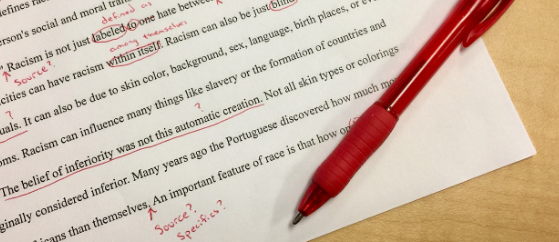 defines rac
defined as
erson's social and moral tran
" Racism is not just labeled to one hate between
Source?
among themselves
cities can have racism within itself. Racism can also be just blind
uals. It can also be due to skin color, background, sex, language, birth places, or eve
?
oms. Racism can influence many things like slavery or the formation of countries and
The belief of inferiority was not this automatic creation. Not all skin types or colorings
ginally considered inferior. Many years ago the Portuguese discovered how much mo
icans than themselves. An important feature of race is that how on
Source?
Specifics?